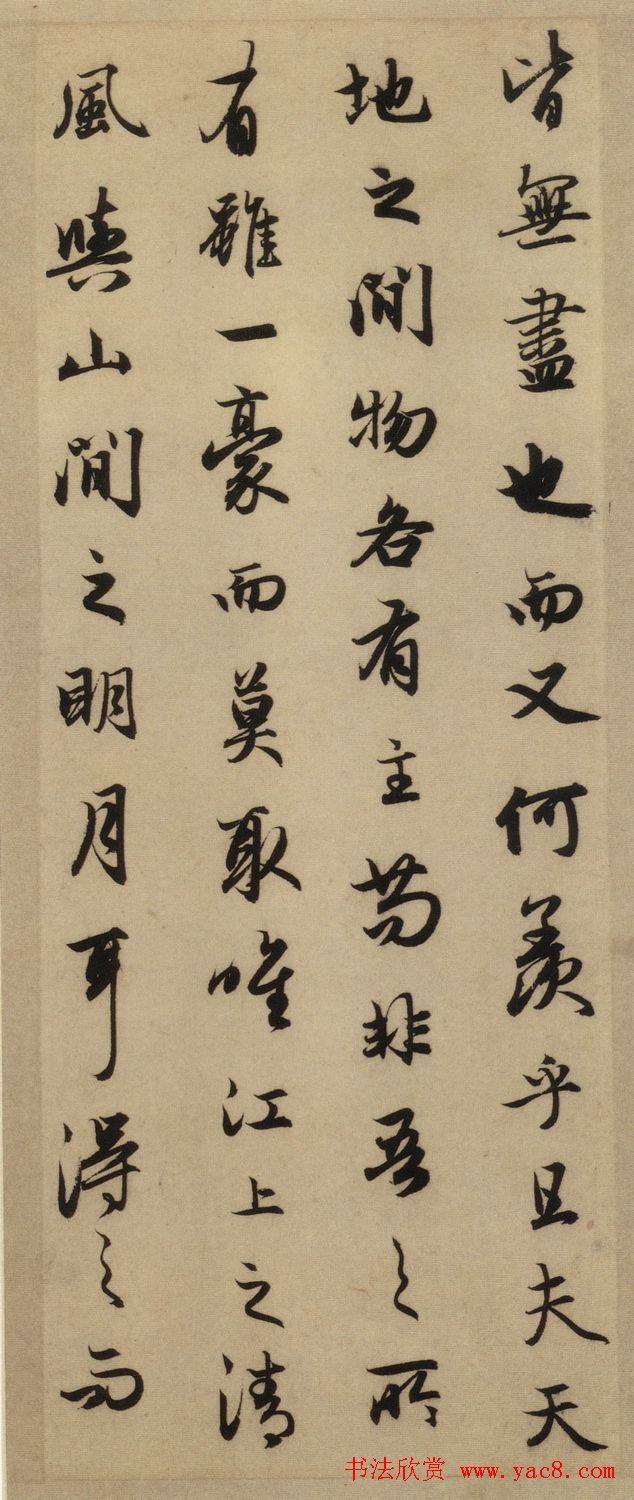 皆無盡也而又何羨乎且夫天
地之間物各有主苟非吾之所
有雖一豪而莫取唯江上之清
風與山間之明月耳得之而
书法欣赏 www.yac8.com